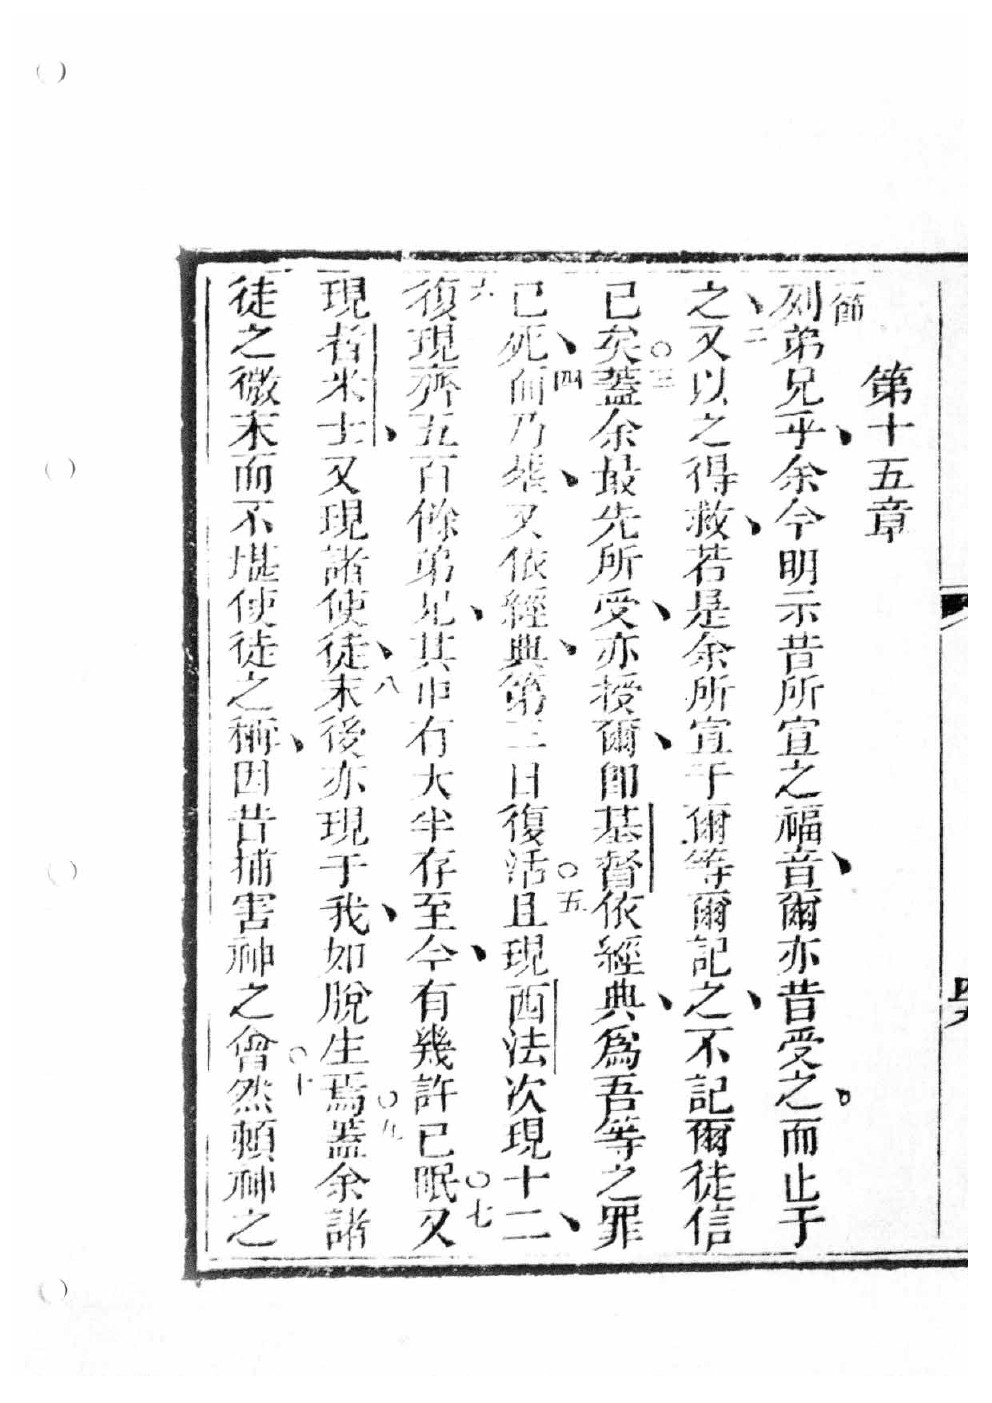 第十五章
一節列弟兄乎、余今明示昔所宣之福音、爾亦昔受之。而止于
之、二又以之得救、若是余所宣于爾等爾記之、不記爾徒信
已矣○三蓋余最先所受、亦授爾、即基督依經典、爲吾等之罪
已死、四而乃葬、又依經典、第三日復活○五且現西法次現十二、
六復現齊五百餘弟兄、其中有大半存至今、有幾許已眠○七又
現者米士、又現諸使徒、八末後亦現于我、如脫生焉○九蓋余諸
徒之微末而不堪使徒之稱、因昔捕害神之會○十然賴神之